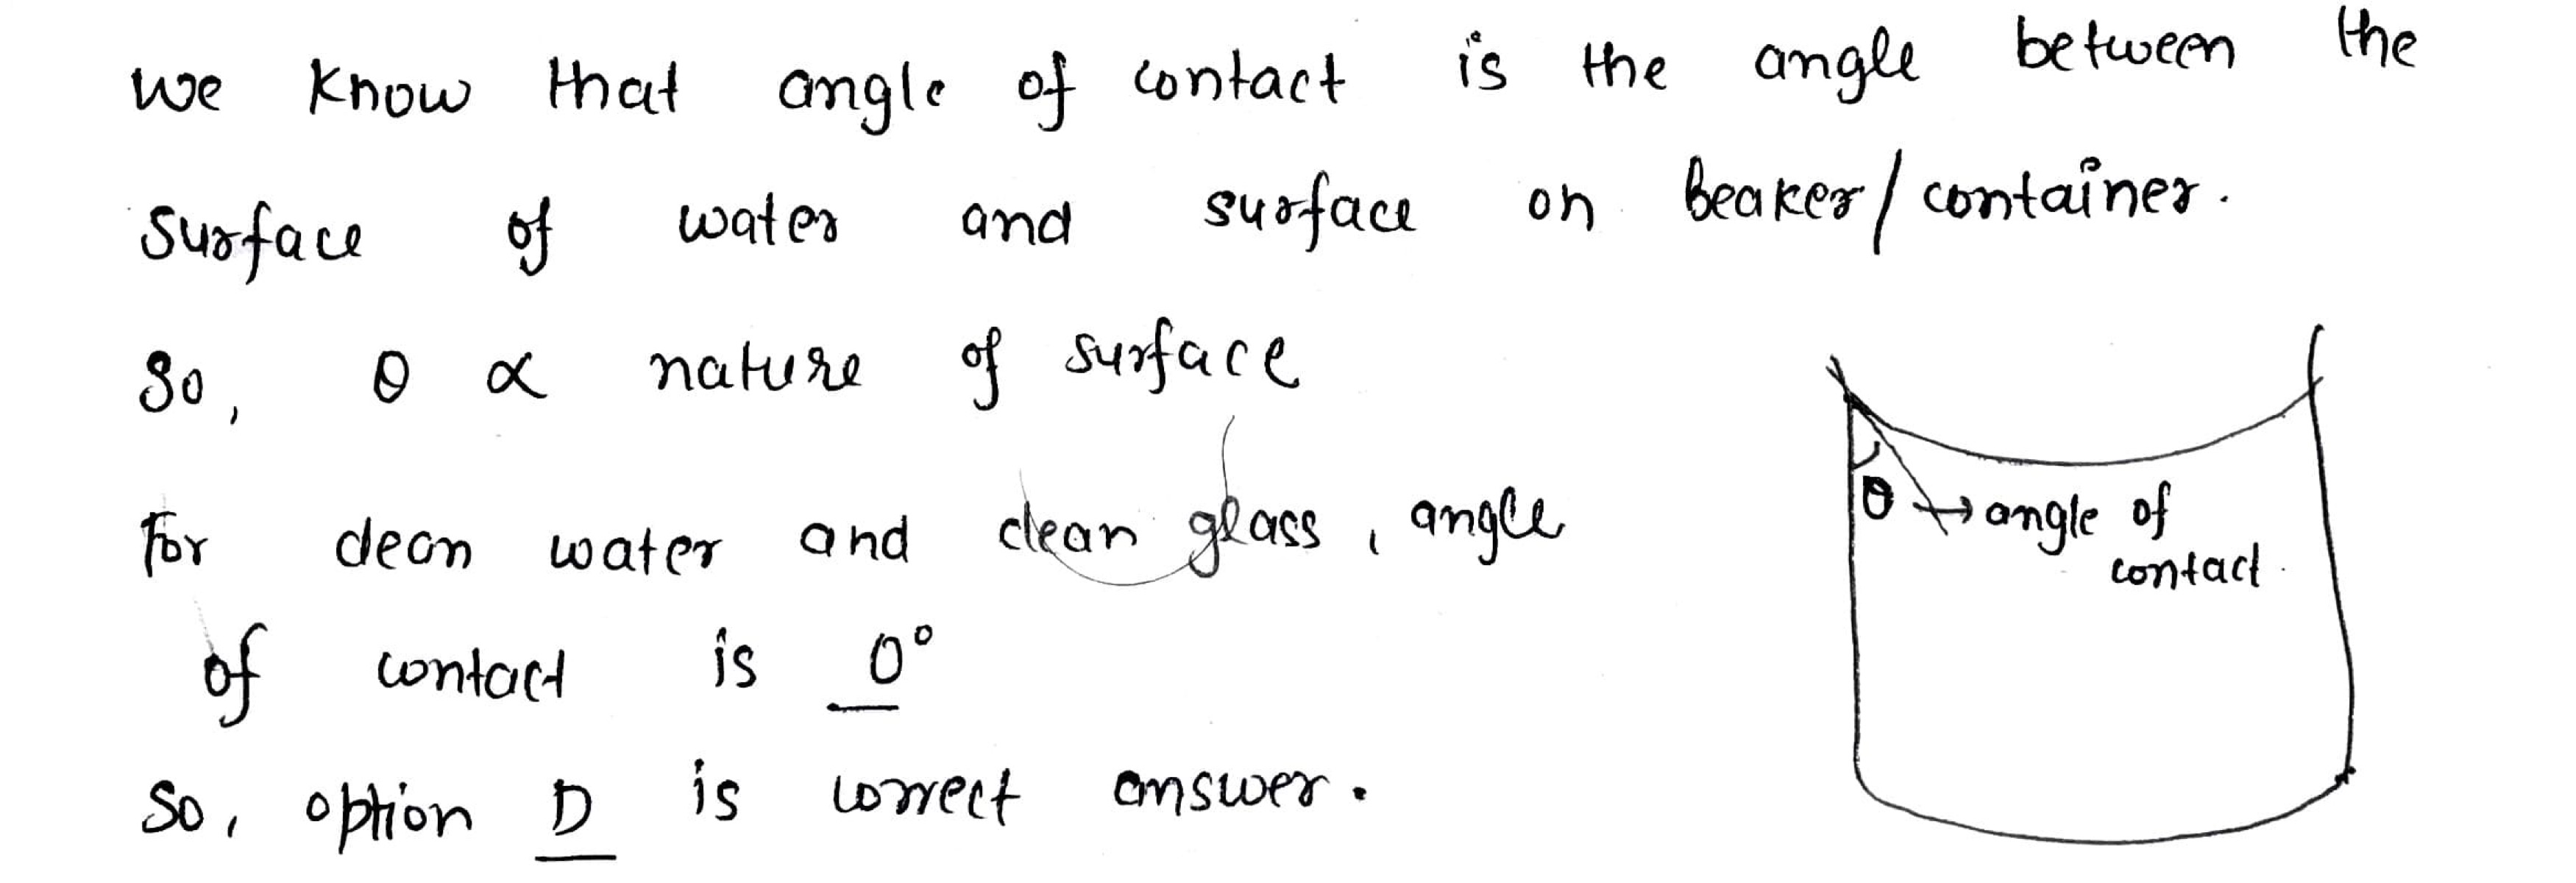 we know that angle of contact is the angle between the
surface of water and surface on Beaker/container.
So, θ ∝ nature of surface
For clean water and clean glass, angle
of contact is 0°
So, option D is correct answer.
θ → angle of
contact